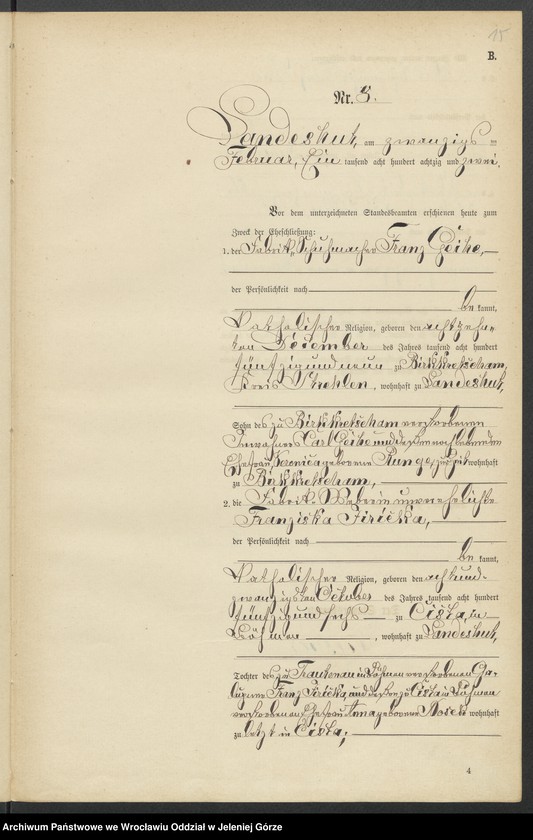 15
B.
Nr. 8.
Landeshut, am zwanzigs =
Februar, Ein tausend acht hundert achtzig und zwei.
Vor dem unterzeichneten Standesbeamten erschienen heute zum
Zweck der Eheschließung:
1. der Fabrik, Schuhmacher Franz Geike,
der Persönlichkeit nach
be kannt,
katholischer Religion, geboren den achtzehn-
ten Dezember des Jahres tausend acht hundert
fünfzig und neun zu Birkkretscham,
Kreis Strehlen, wohnhaft zu Landeshut,
Sohn des zu Birkkretscham verstorbenen
Inwohners Carl Geike und dessen noch lebenden
Ehefrau Veronica geborene Runge, wohnhaft
zu Birkkretscham,
2. die Fabrik-Weberin unverehelichte
Franziska Jirička,
der Persönlichkeit nach
be kannt,
katholischer Religion, geboren den acht und-
zwanzigsten Oktober des Jahres tausend acht hundert
fünfzig und sechs zu Čista, in
Böhmen, wohnhaft zu Landeshut,
Tochter des zu Trautenau in Böhmen verstorbenen
Franz Jirička, und dessen zu Čista in Böhmen
verstorbenen Ehefrau Anna geborene Nosek wohnhaft
zu letzt in Čista;
4
Archiwum Państwowe we Wrocławiu Oddział w Jeleniej Górze